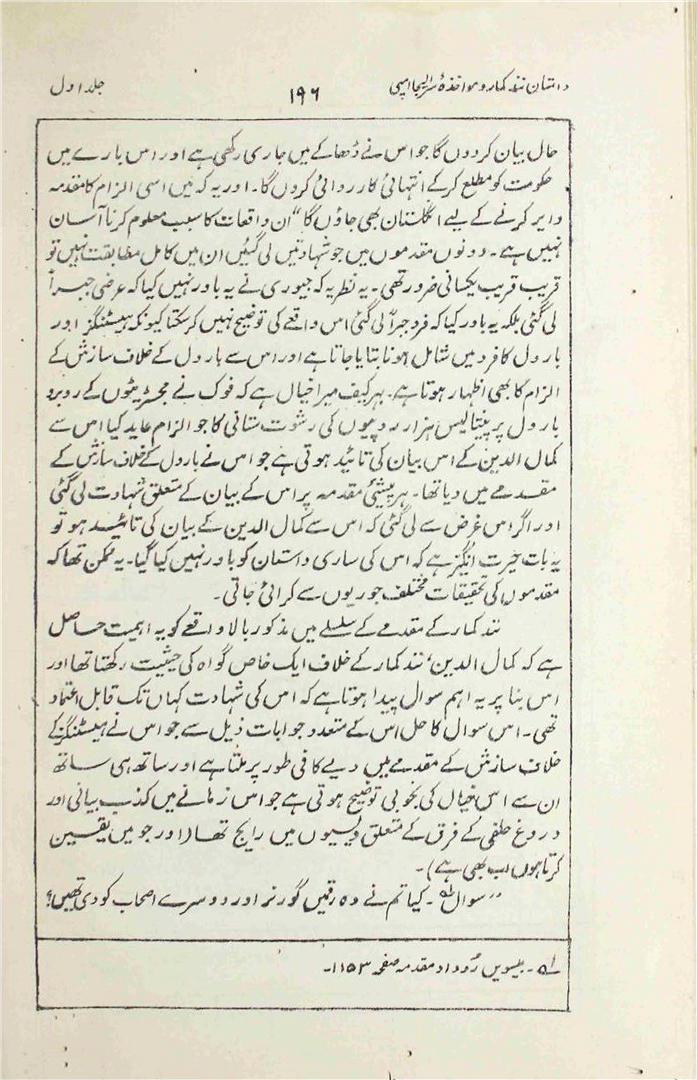 داستان نند کمار و مواخذۂ سر الیجا امپی ۱۹۶ جلد اول
حال بیان کردوں گا جو اس نے ڈھاکے میں جاری رکھی ہے اور اس بارے میں
حکومت کو مطلع کرکے انتہائی کارروائی کروں گا۔ اور یہ کہ میں اسی الزام کا مقدمہ
دایر کرنے کے لیے انگلستان بھی جاؤں گا“ ان واقعات کا سبب معلوم کرنا آسان
نہیں ہے۔ دونوں مقدموں میں جو شہادتیں لی گئیں ان میں کامل مطابقت نہیں تو
قریب قریب یکسانی ضرور تھی۔ یہ نظریہ کہ جیوری نے یہ باور نہیں کیا کہ عرضی جبراً
لی گئی بلکہ یہ باور کیا کہ فرد جبراً لی گئی اس واقعے کی توضیح نہیں کرسکتا کیونکہ ہیسٹنگز اور
بارول کا فرد میں شامل ہونا بتایا جاتا ہے اور اس سے بارول کے خلاف سازش کے
الزام کا بھی اظہار ہوتا ہے۔ بہرکیف میرا خیال ہے کہ فوک نے مجسٹریٹوں کے روبرو
بارول پر پینتالیس ہزار روپیوں کی رشوت ستانی کا جو الزام عاید کیا اس سے
کمال الدین کے اس بیان کی تائید ہوتی ہے جو اس نے بارول کے خلاف سازش کے
مقدمے میں دیا تھا۔ ہر پیشئ مقدمہ پر اس کے بیان کے متعلق شہادت لی گئی
اور اگر اس غرض سے لی گئی کہ اس سے کمال الدین کے بیان کی تائید ہو تو
یہ بات حیرت انگیز ہے کہ اس کی ساری داستان کو باور نہیں کیا گیا۔ یہ ممکن تھا کہ
مقدموں کی تحقیقات مختلف جوریوں سے کرائی جاتی۔
نند کمار کے مقدمے کے سلسلے میں مذکور بالا واقعے کو یہ اہمیت حاصل
ہے کہ کمال الدین، نند کمار کے خلاف ایک خاص گواہ کی حیثیت رکھتا تھا اور
اس بنا پر یہ اہم سوال پیدا ہوتا ہے کہ اس کی شہادت کہاں تک قابل اعتماد
تھی۔ اس سوال کا حل اس کے متعدد جوابات ذیل سے جو اس نے ہیسٹنگز کے
خلاف سازش کے مقدمے میں دیے کافی طور پر ملتا ہے اور ساتھ ہی ساتھ
ان سے اس خیال کی بخوبی توضیح ہوتی ہے جو اس زمانے میں کذب بیانی اور
دروغ حلفی کے فرق کے متعلق دیسیوں میں رایج تھا (اور جو میں یقین
کرتا ہوں اب بھی ہے)۔
”سوال ۱؎۔ کیا تم نے وہ رقمیں گورنر اور دوسرے اصحاب کو دی تھیں؟
۱؎۔ بیسویں روُداد مقدمہ صفحہ ۱۱۵۳۔